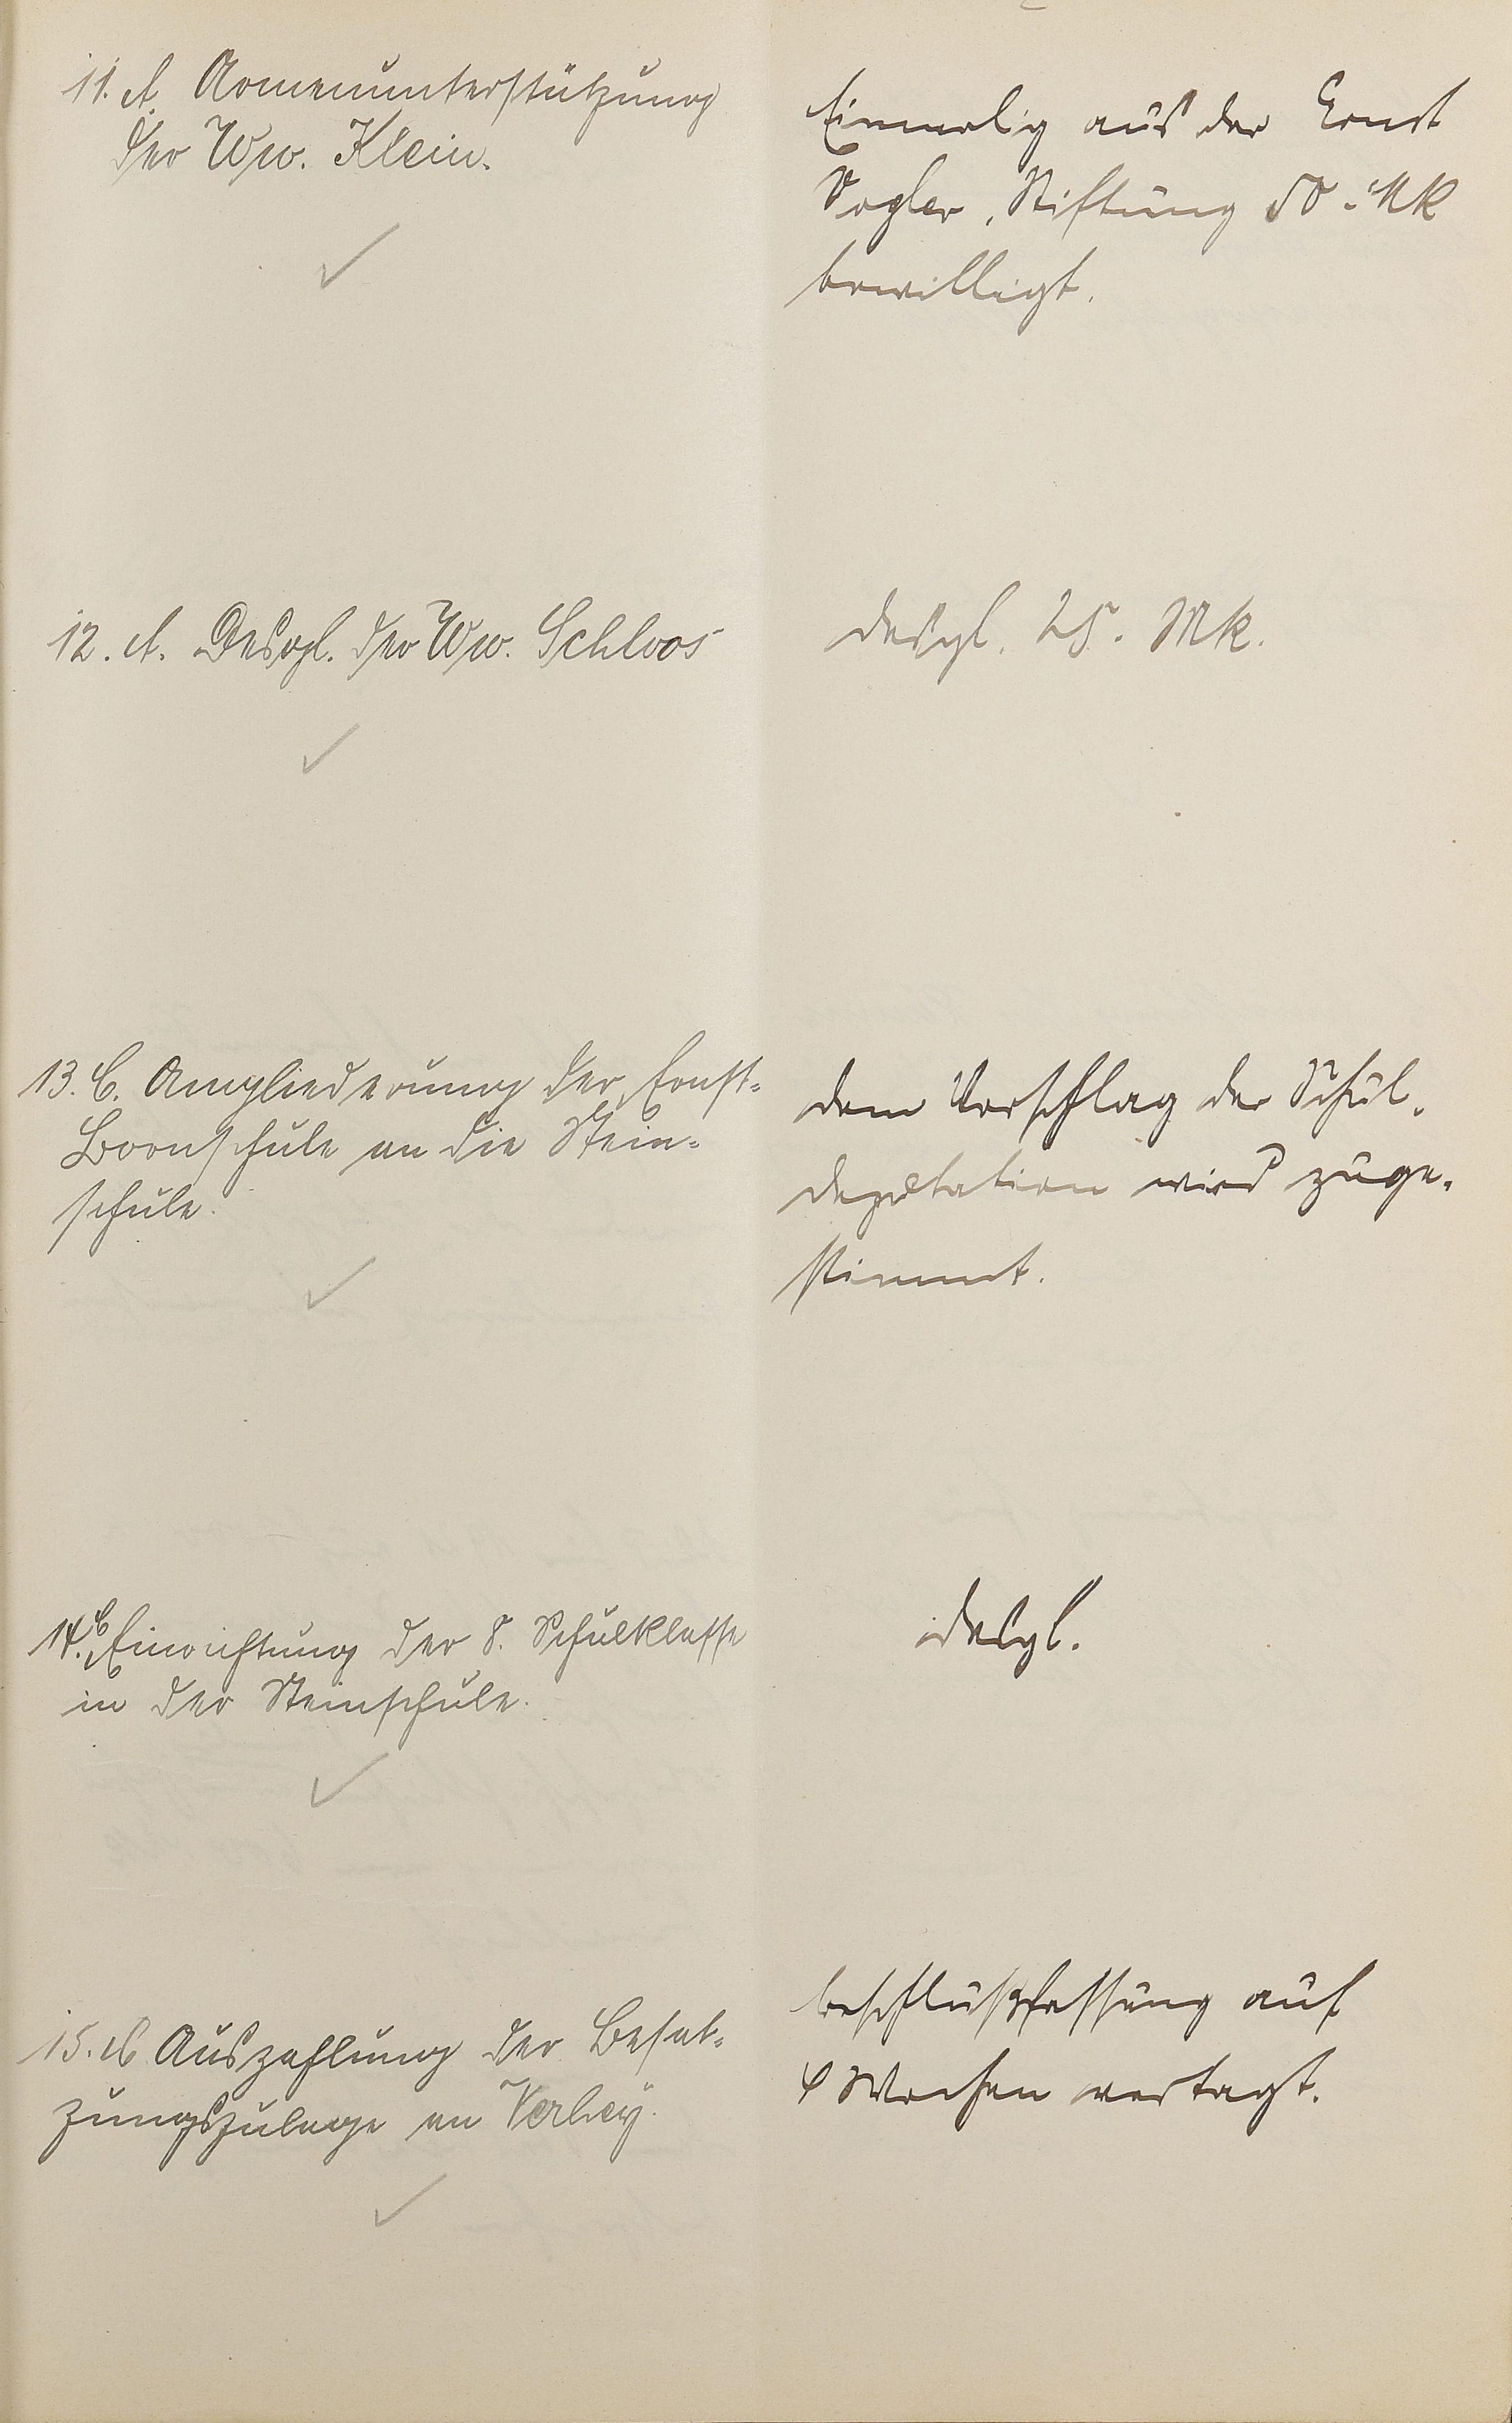 11. A. Armenunterstützung
der Ww. Klein.
Einmalig aus der Ernst
Vogler-Stiftung 50.- Mk
bewilligt.
12. A. Desgl. der Ww. Schloos
desgl. 25. Mk.
13. C. Angliederung der Ernst-
Bornschule an die Stein-
schule.
Dem Vorschlag der Schul-
deputation wird zuge-
stimmt.
14. C. Einrichtung der 8. Schulklasse
in der Steinschule.
desgl.
15. A Auszahlung der Besat-
zungszulage an Verhey.
Beschlußfassung auf
4 Wochen vertagt.